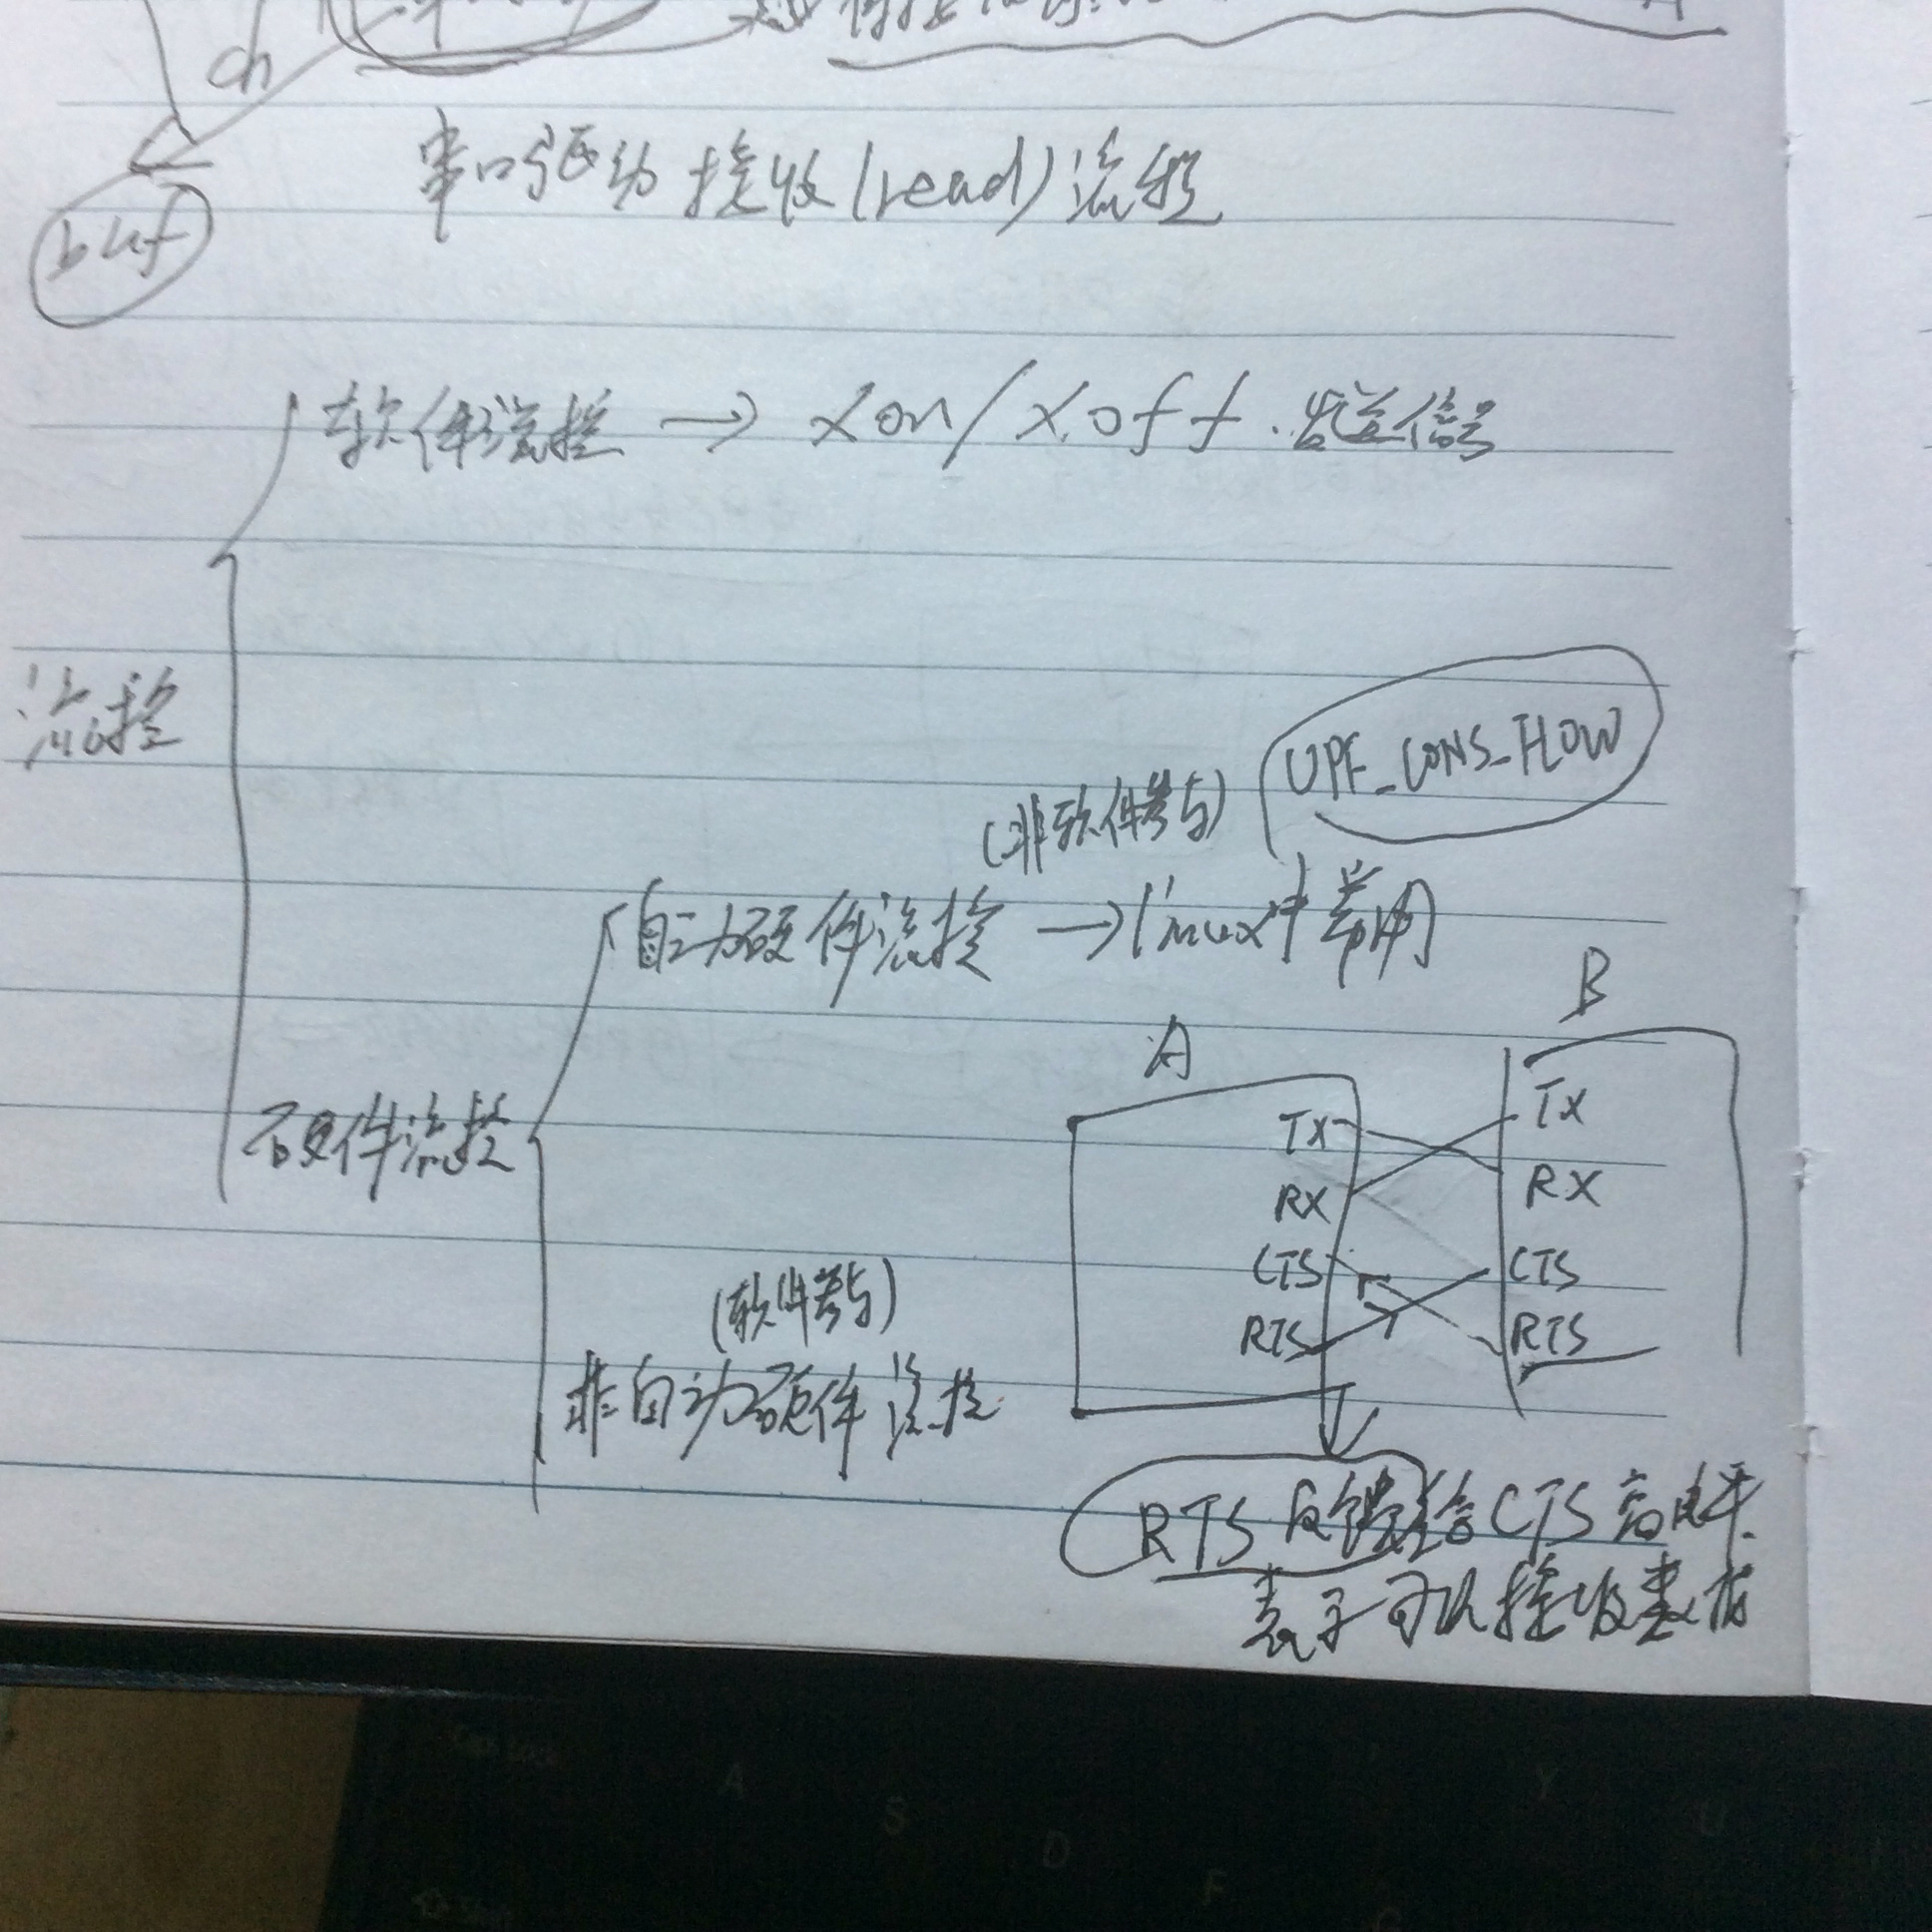 ch
buf
串口驱动接收(read)流程
软件流控 → xon/xoff.发送信号
流控
UPF_CONS_FLOW
(非软件参与)
自动硬件流控 → linux中常用
硬件流控
A
B
TX
RX
CTS
RTS
TX
RX
CTS
RTS
(软件参与)
非自动硬件流控
RTS反馈给CTS高电平.
表示可以接收数据
A
S
D
F
G
Y
U